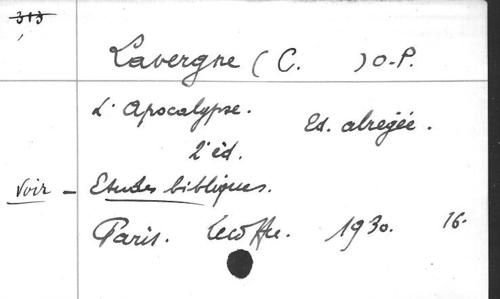 313
Lavergne (C. ) O.P.
L'Apocalypse. Ed. abrégée.
2e éd.
Voir - Etudes bibliques.
Paris. Lecoffre. 1930. 16-